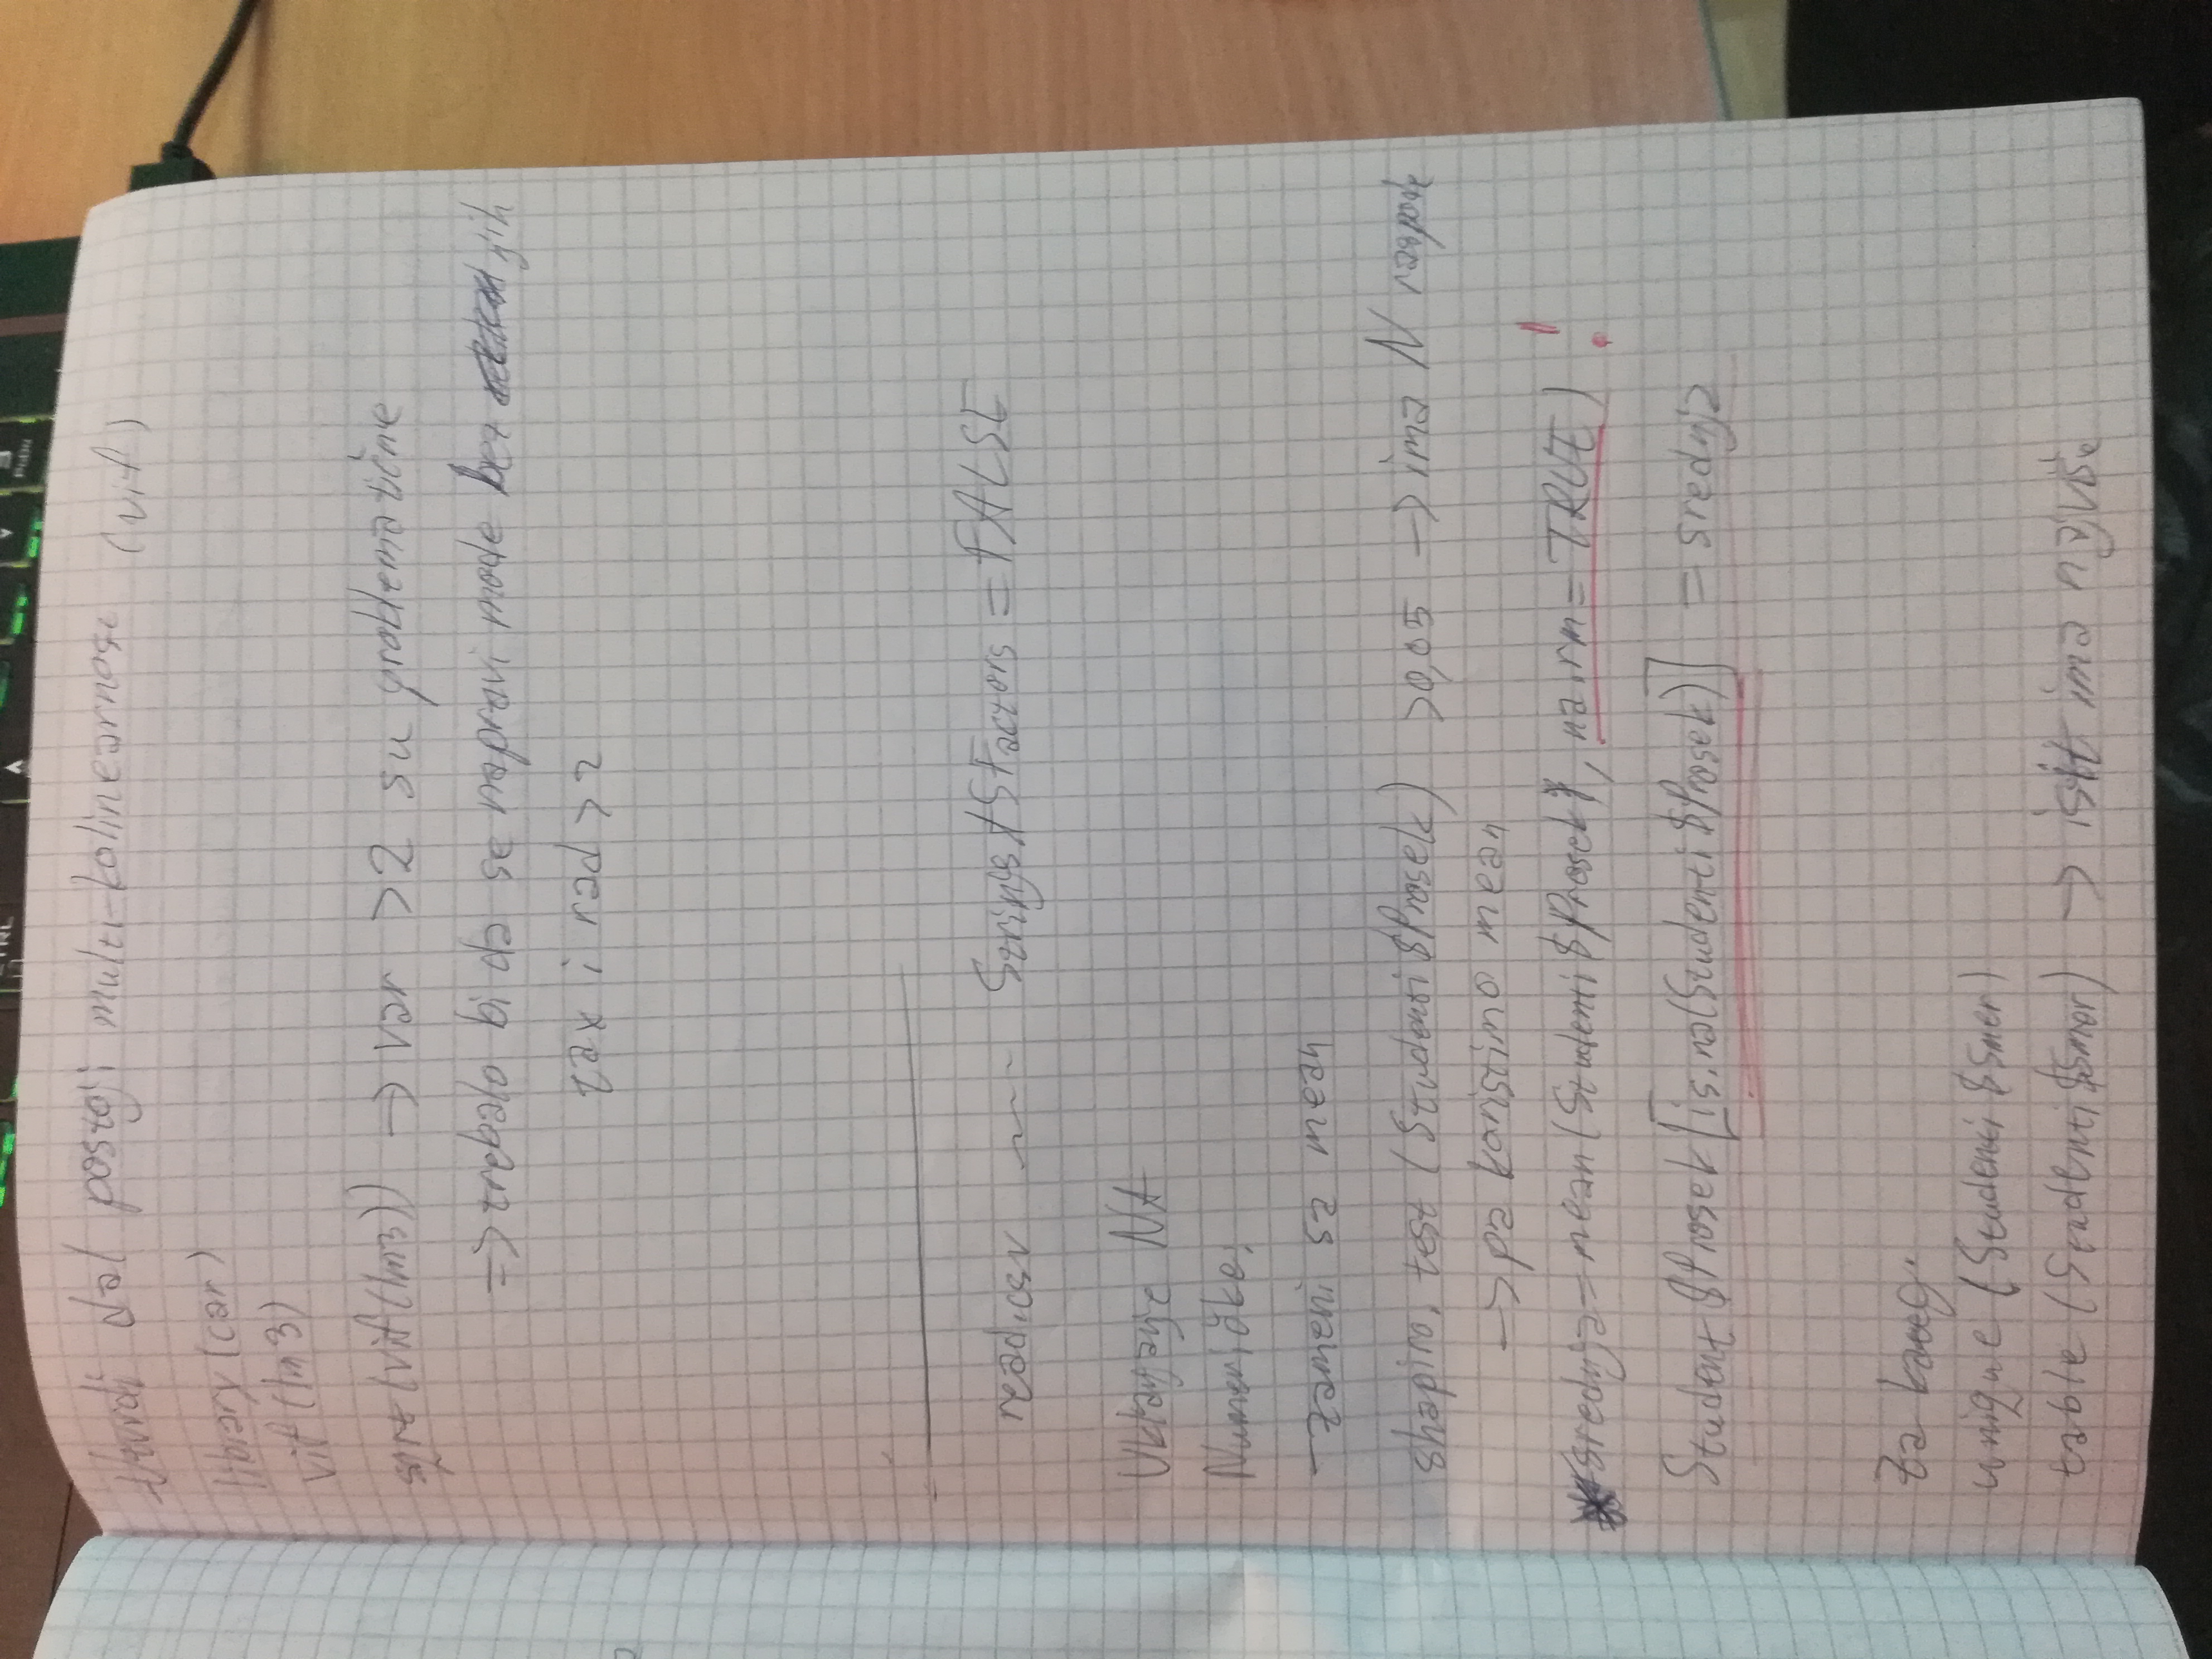 Utvrdi dal postoji multi-kolinearnost (vif)
library(car)
vif(lm3)
sqrt(vif(lm3)) → var >2 su problematične
=> trebalo bi da se napravi mode bez njih
tax i rad >2
read.csv --- StringsASFactors = FALSE
Uklanjanje NA
Numeričke:
- zameni sa mean
shapiro.test(Studenti$Prosek) >0,05 → ima N raspode
→ pa koristimo mean
* srednja = mean(Studenti$Prosek, na.rm = TRUE) !
Student$Prosek[is.na(Studenti$Prosek)] = srednja
Za kateg.
unique(Studenti$Smer)
table(Studenti$Smer) → isit ima najviše
CTRL
PgDn